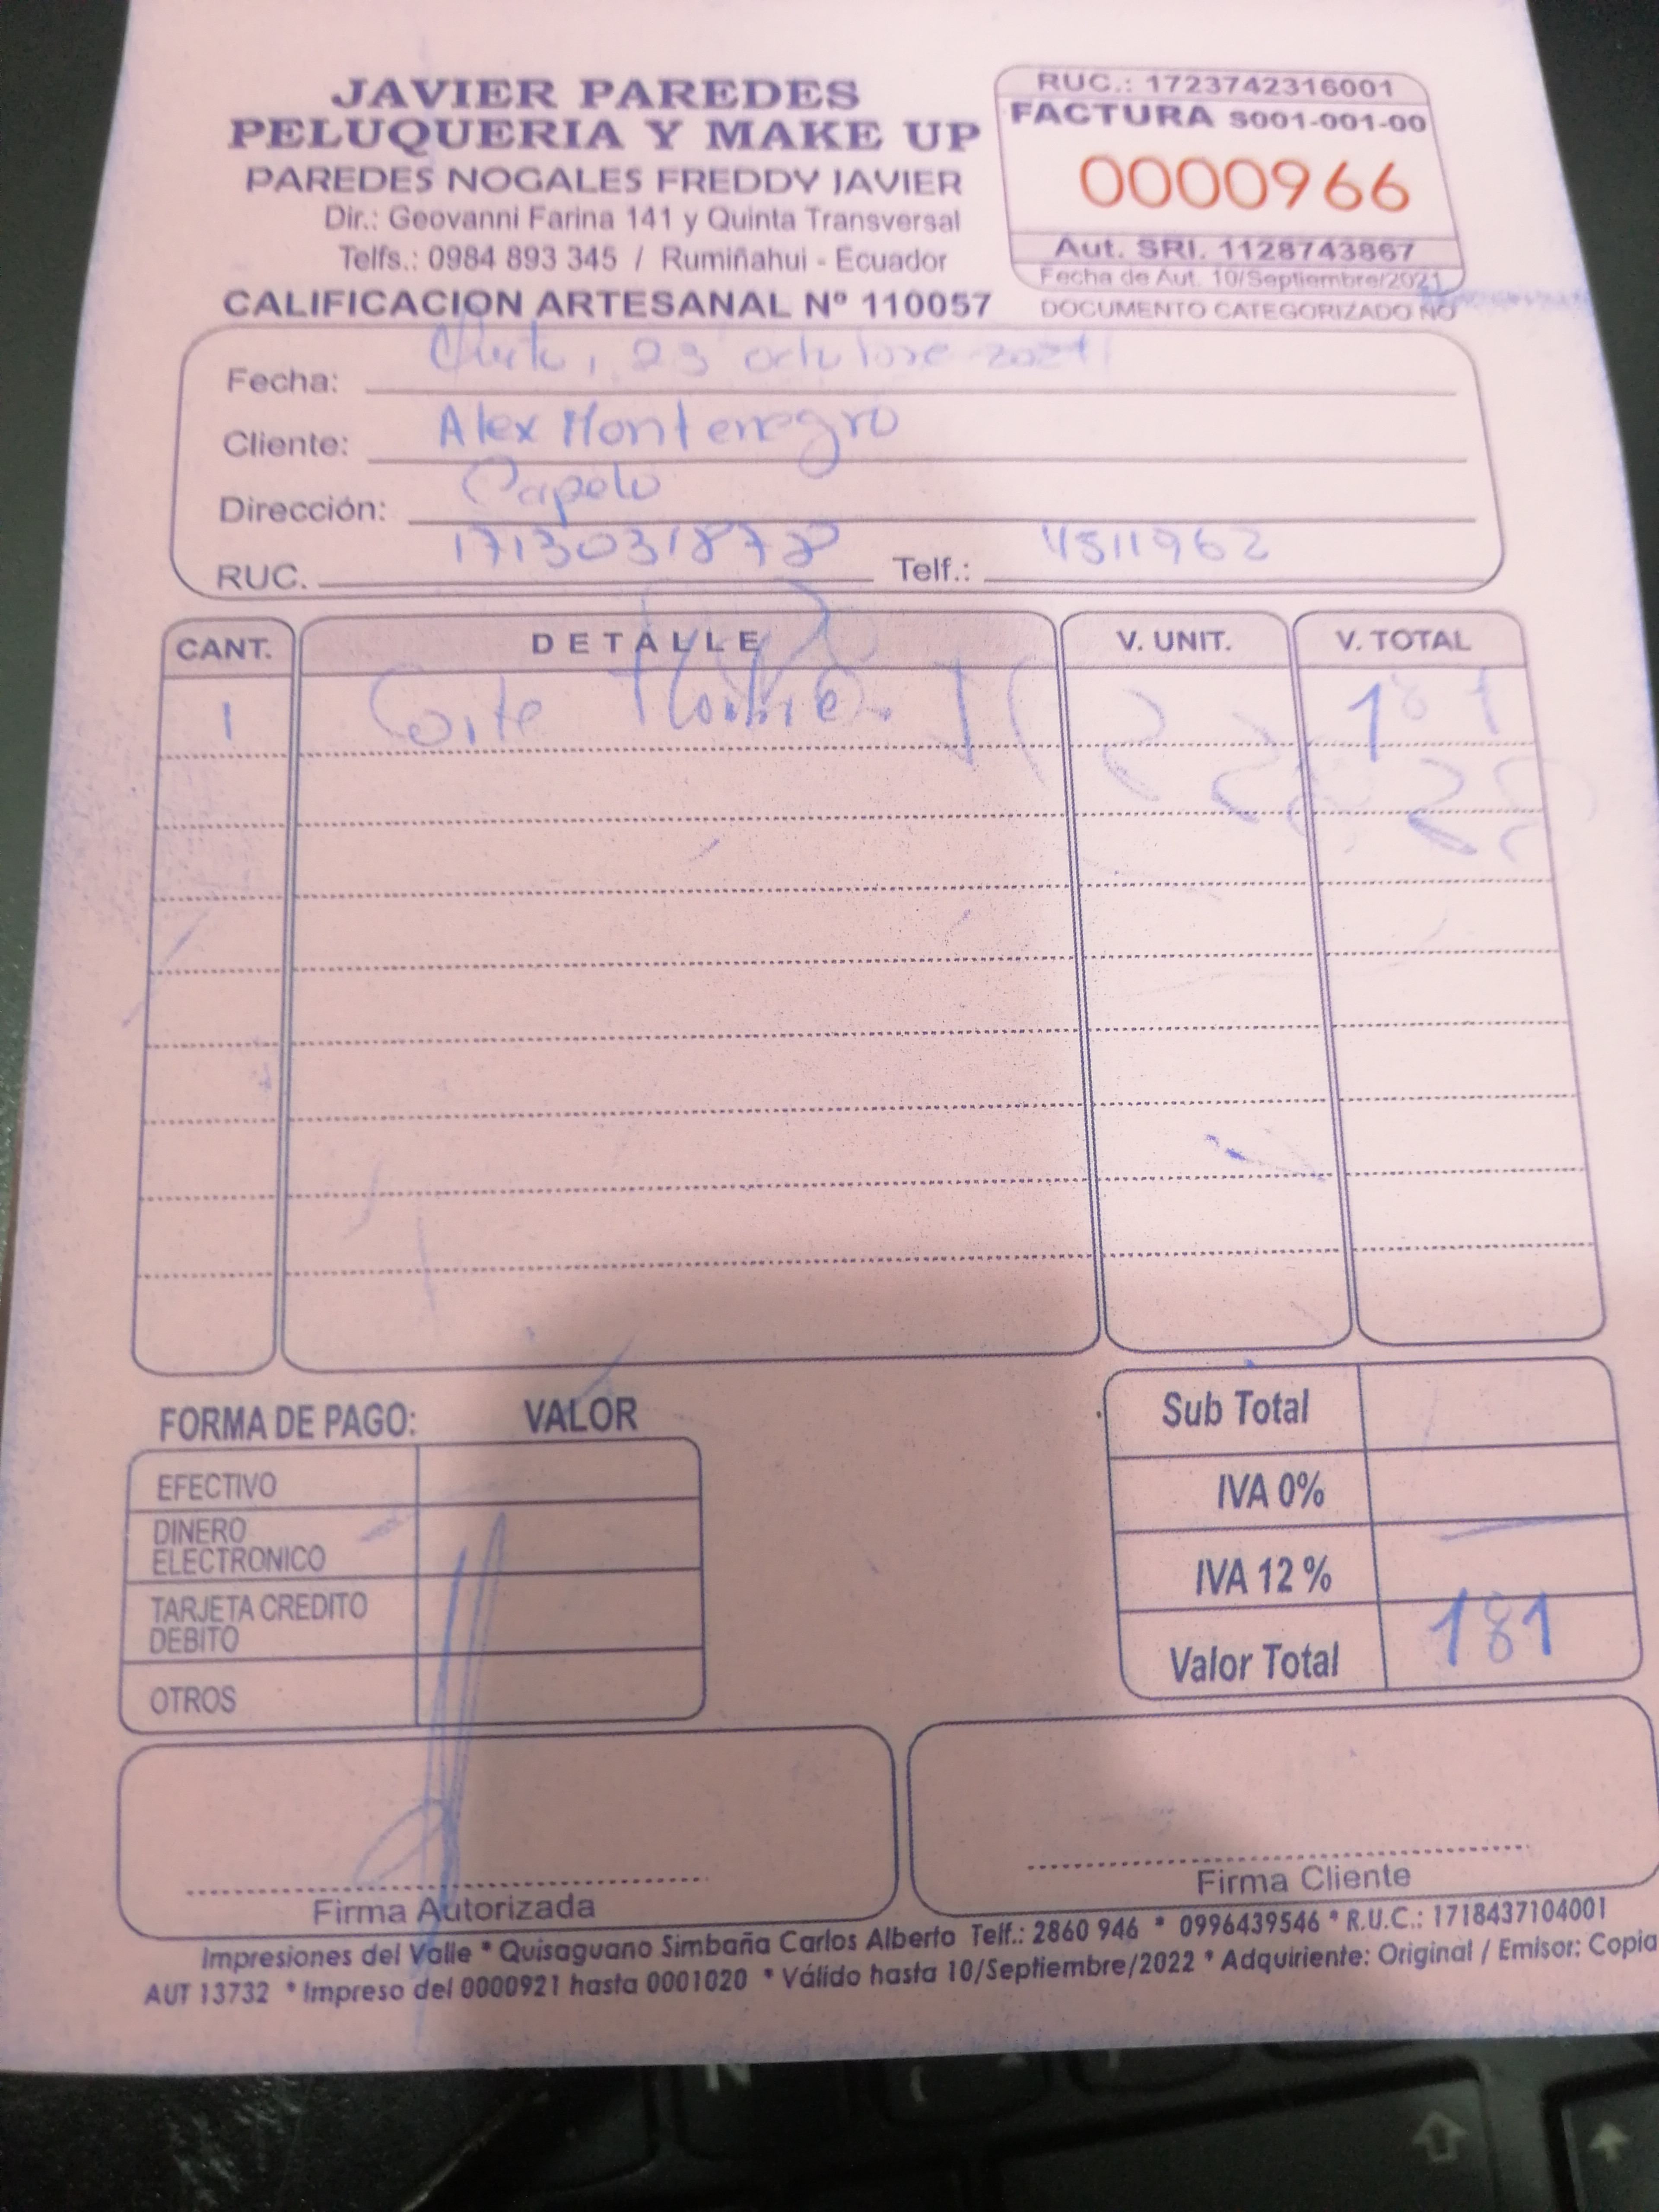 JAVIER PAREDES
PELUQUERIA Y MAKE UP
PAREDES NOGALES FREDDY JAVIER
Dir.: Geovanni Farina 141 y Quinta Transversal
Telfs.: 0984 893 345 / Rumiñahui - Ecuador
CALIFICACION ARTESANAL Nº 110057
RUC.: 1723742316001
FACTURA S001-001-00
0000966
Aut. SRI. 1128743867
Fecha de Aut. 10/Septiembre/2021
DOCUMENTO CATEGORIZADO NO
Fecha: 23 octubre 2021
Cliente: Alex Montenegro
Dirección: Capelo
RUC. 1713031878 Telf.: 4511962
CANT. DETALLE V. UNIT. V. TOTAL
1 Corte Hombre. 181
FORMA DE PAGO: VALOR
EFECTIVO
DINERO
ELECTRONICO
TARJETA CREDITO
DEBITO
OTROS
Sub Total
IVA 0%
IVA 12 %
Valor Total 181
Firma Autorizada
Firma Cliente
Impresiones del Valle * Quisaguano Simbaña Carlos Alberto Telf.: 2860 946 * 0996439546 * R.U.C.: 1718437104001
AUT 13732 * Impreso del 0000921 hasta 0001020 * Válido hasta 10/Septiembre/2022 * Adquiriente: Original / Emisor: Copia
N